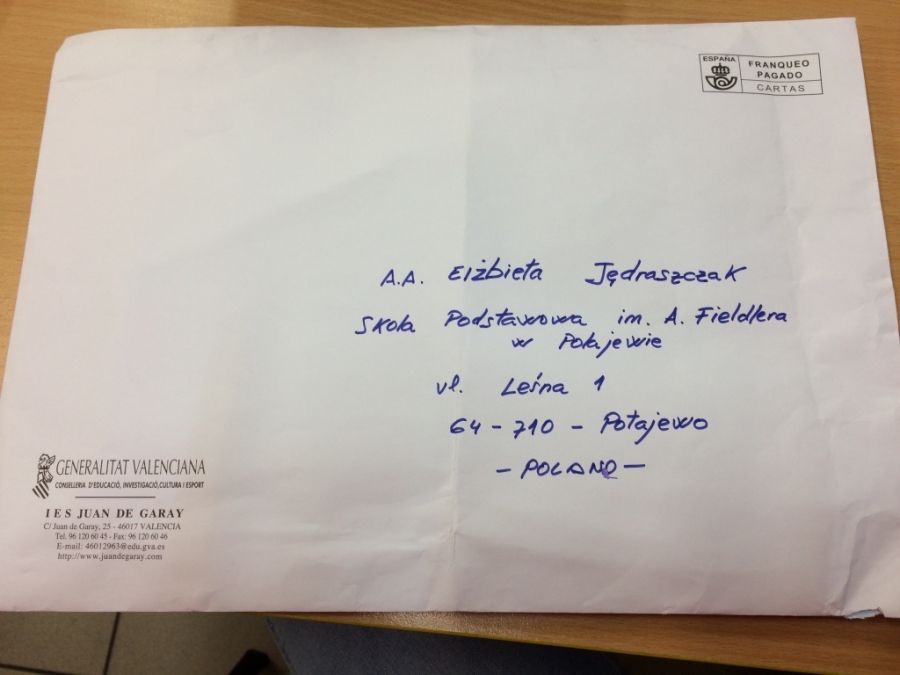 ESPAÑA
FRANQUEO
PAGADO
CARTAS
A.A. Elżbieta Jędraszczak
Skoła Podstawowa im. A. Fieldlera
w Połajewie
ul. Leśna 1
64-710 - Połajewo
- POLAND -
GENERALITAT VALENCIANA
CONSELLERIA D'EDUCACIÓ, INVESTIGACIÓ, CULTURA I ESPORT
IES JUAN DE GARAY
C/ Juan de Garay, 25 - 46017 VALENCIA
Tel. 96 120 60 45 - Fax: 96 120 60 46
E-mail: 46012963@edu.gva.es
http://www.juandegaray.com